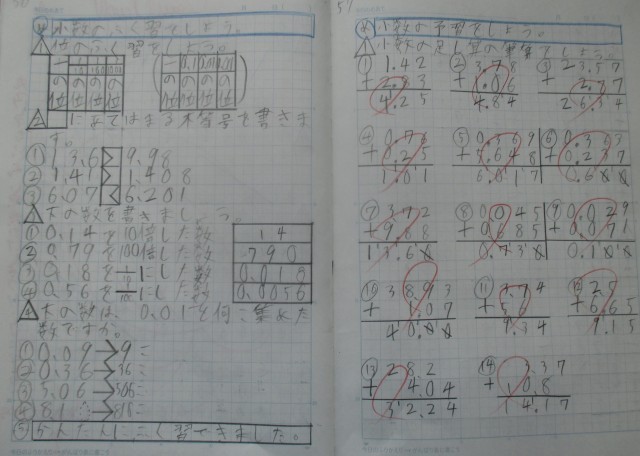 小数のふく習をしよう。
位のふく習をしよう。
の位 の位 の位 の位
の位 の位 の位 の位
にあてはまる不等号を書きま
す。
① 13.6 > 9.98
② 1.41 > 1.408
③ 6.07 < 6.201
次の数を書きましょう。
① 0.14を100倍した数 14
② 0.79を1000倍した数 790
③ 0.18を1/10にした数 0.018
④ 0.56を1/100にした数 0.0056
次の数は、0.01を何こ集めた
数ですか。
① 0.09→9こ
② 0.36→36こ
③ 5.06→506こ
⑤ かんたんにふく習できました。
51
小数の予習をしよう。
小数の足し算の筆算をしよう。
① 1.42 ② 3.78 ③ 23.57
+2.83 +1.06 +2.77
4.25 4.84 26.34
④ 0.76 ⑤ 0.369 ⑥ 0.363
+0.25 +5.648 +0.237
1.01 6.017 0.600
⑦ 3.72 ⑧ 0.045 ⑨ 0.029
+9.88 +0.685 +0.071
13.60 0.730 0.100
⑩ 38.93 ⑪ 3.74 ⑫ 2.5
+1.07 +5.6 +6.65
40.00 9.34 9.15
⑬ 28.2 ⑭ 3.37
+4.04 +10.8
32.24 14.17